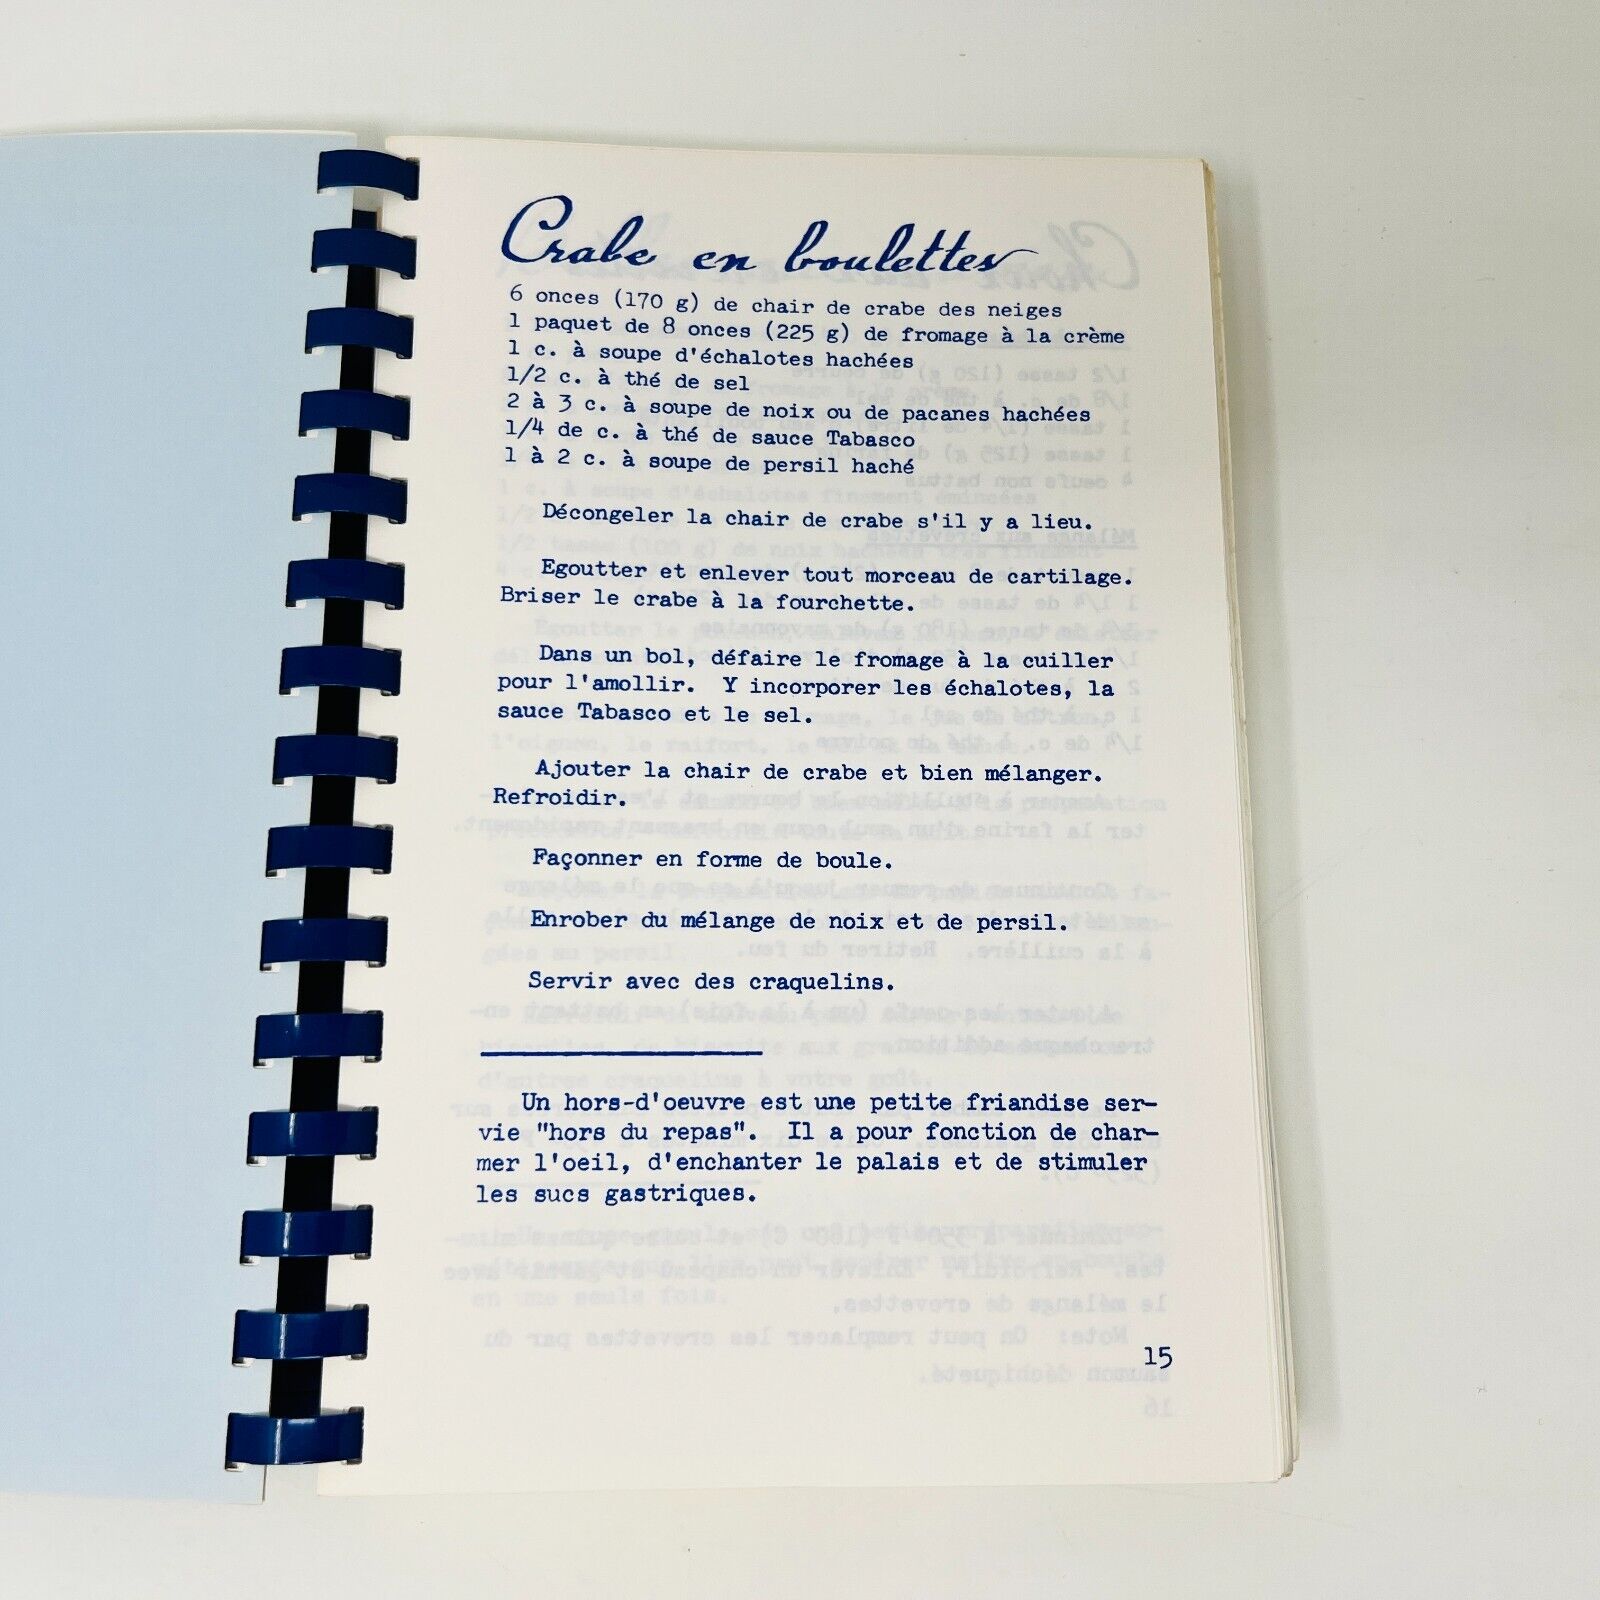 Crabe en boulettes
6 onces (170 g) de chair de crabe des neiges
1 paquet de 8 onces (225 g) de fromage à la crème
1 c. à soupe d'échalotes hachées
1/2 c. à thé de sel
2 à 3 c. à soupe de noix ou de pacanes hachées
1/4 de c. à thé de sauce Tabasco
1 à 2 c. à soupe de persil haché
Décongeler la chair de crabe s'il y a lieu.
Egoutter et enlever tout morceau de cartilage.
Briser le crabe à la fourchette.
Dans un bol, défaire le fromage à la cuiller
pour l'amollir. Y incorporer les échalotes, la
sauce Tabasco et le sel.
Ajouter la chair de crabe et bien mélanger.
Refroidir.
Façonner en forme de boule.
Enrober du mélange de noix et de persil.
Servir avec des craquelins.
Un hors-d'oeuvre est une petite friandise ser-
vie "hors du repas". Il a pour fonction de char-
mer l'oeil, d'enchanter le palais et de stimuler
les sucs gastriques.
15